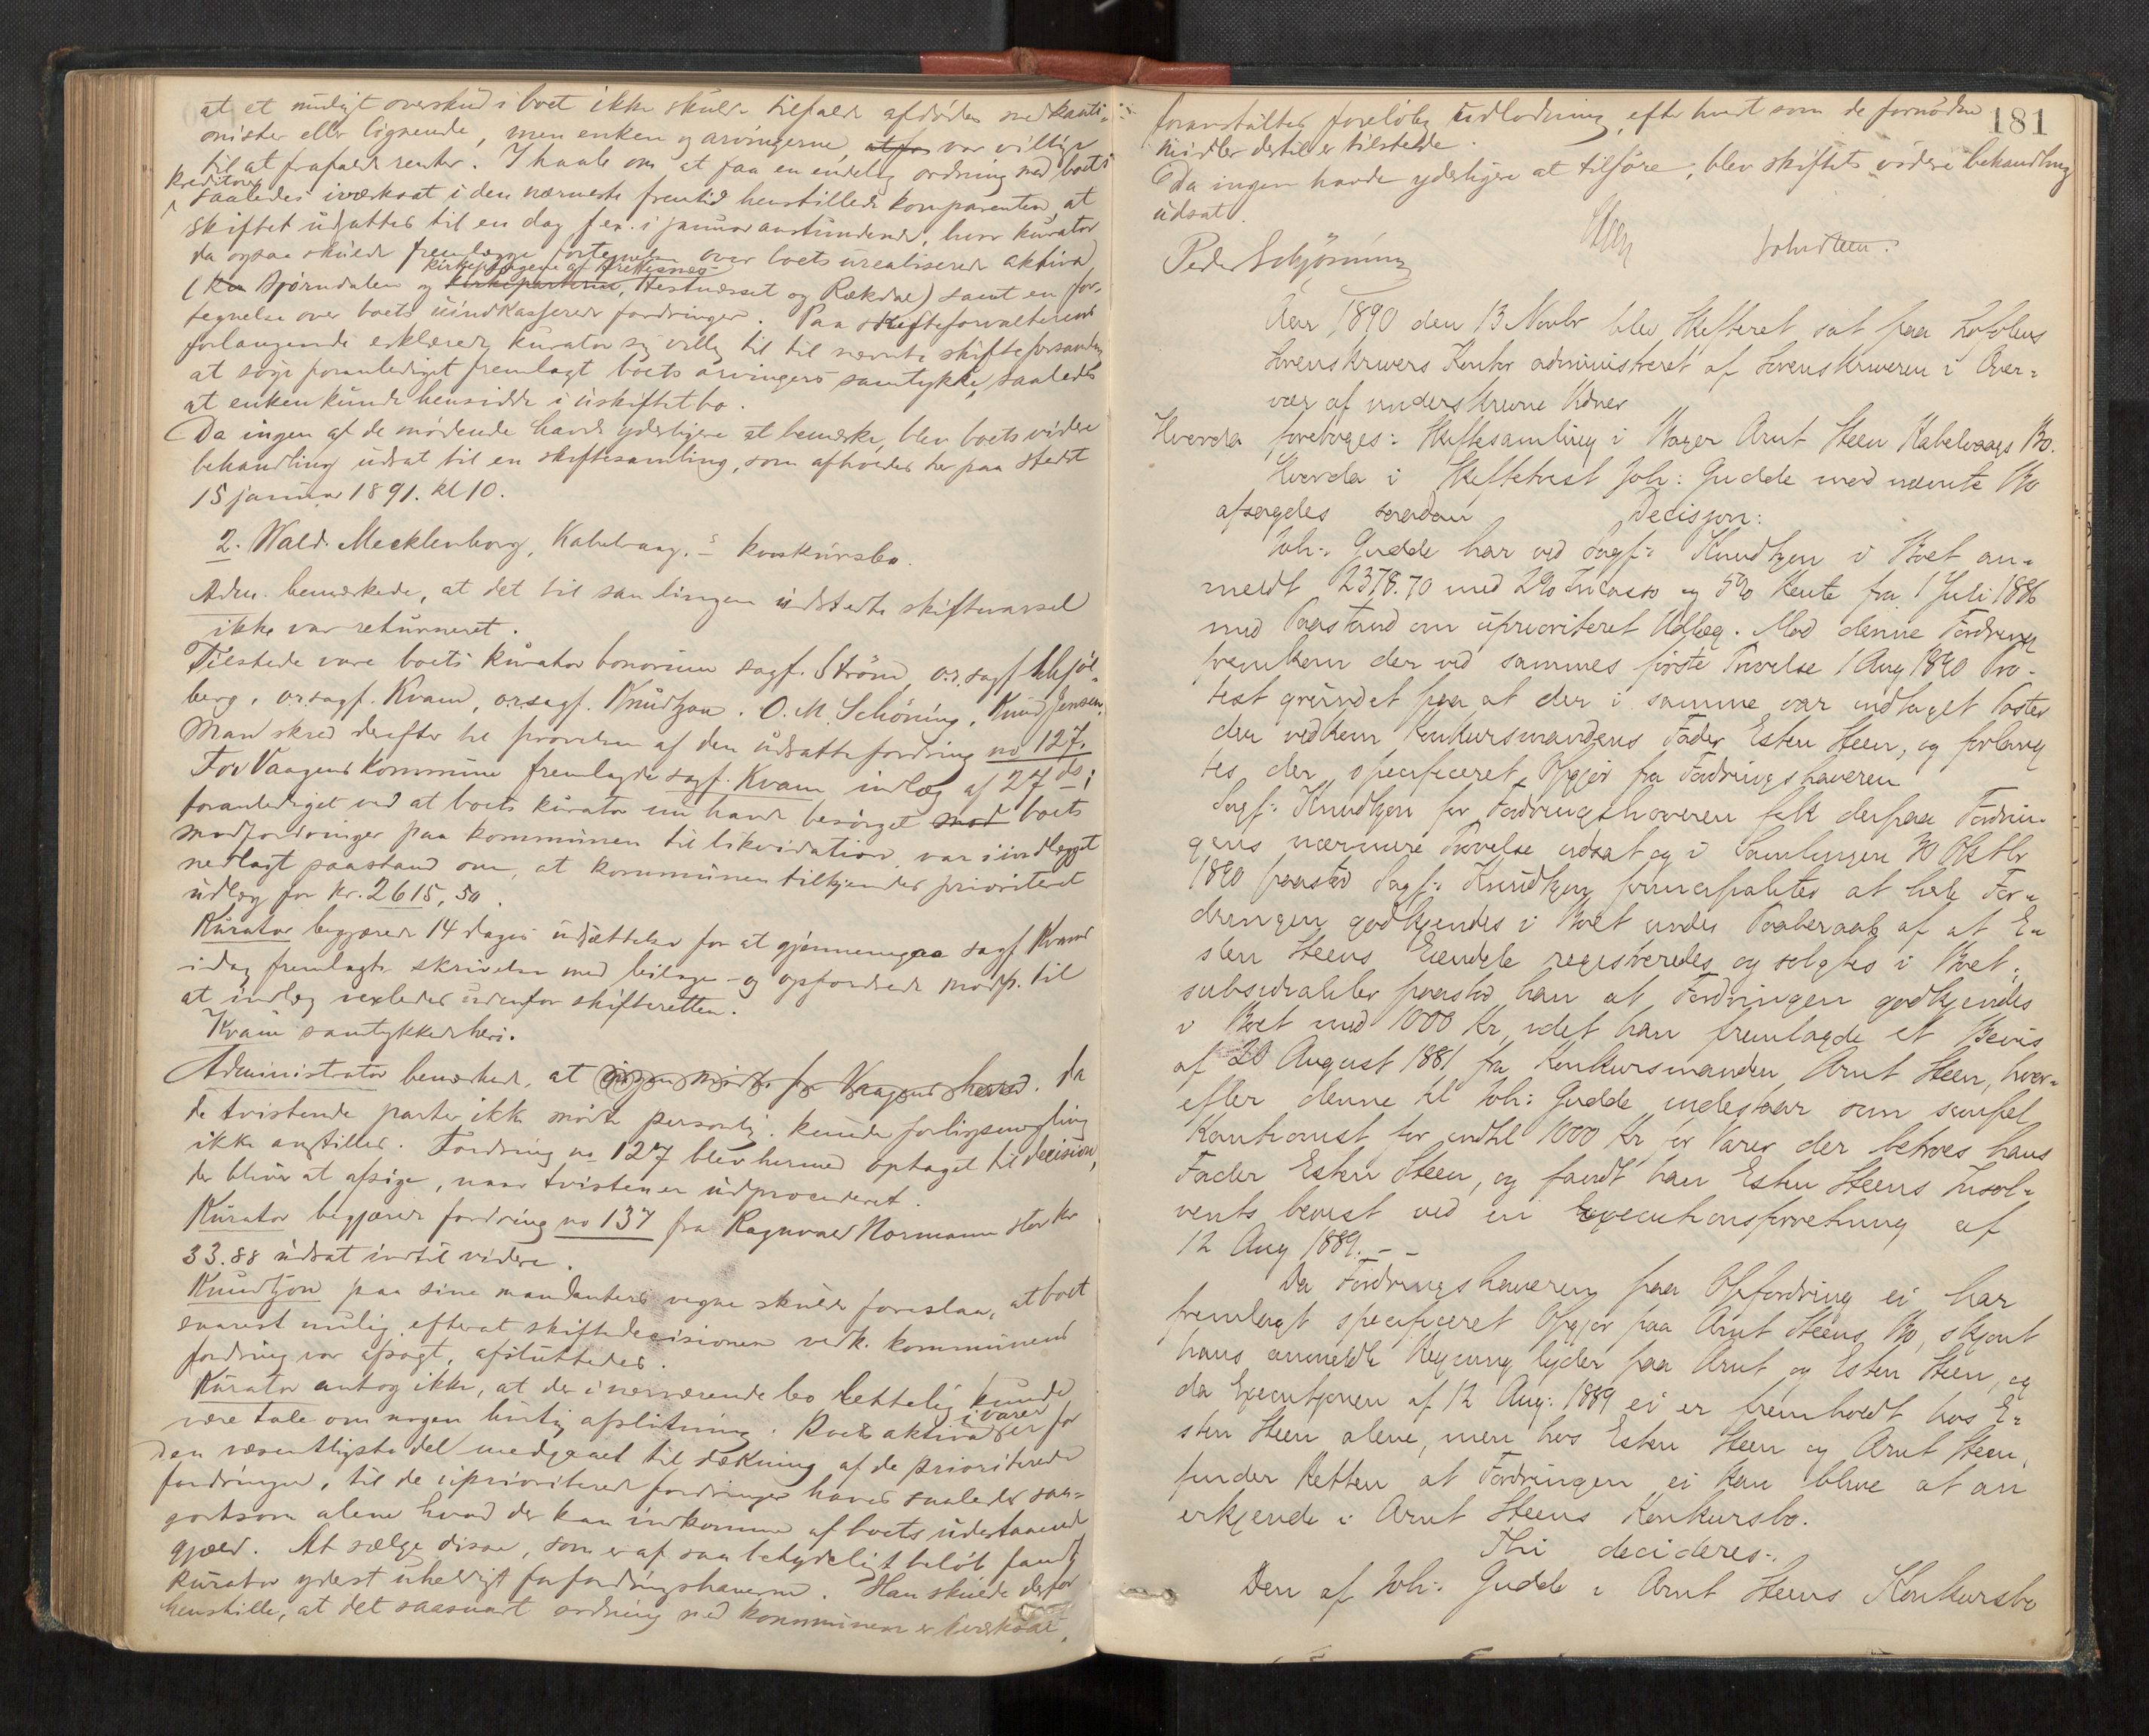 at et muligt overskud i boet ikke skulde tilfalde afdødes medkauti-
onister eller lignende, men enken og arvingerne, at for var villige
til at frafalde renter. I haab om at faa en endelig ordning med boets
kreditorer
saaledes iværksat i den nærmeste fremtid henstillede komparenten, at
skiftet udsættes til en dag f. ex. i januar anstundende, hvor kurator
da ogsaa skulde fremlægge fortegnelse over boets urealiserede aktiva
kirkejordene
(Kir Spørndalen og Kirkeparterne, Hestnæsset og Rækdal) samt en for-
tegnelse over boets uindkasserede fordringer. Paa skifteforvalterens
forlangende erklærede kurator sig villig til til nævnte skiftesamling
at søge foranlediget fremlagt boets arvingers samtykke, saaledes
at enken kunde hensidde i uskiftet bo.
Da ingen af de mødende havde yderligere at bemærke, blev boets videre
behandling udsat til en skiftesamling, som afholdes her paa stedet
15 januar 1891. kl 10.
2. Wald. Mecklenborg, Kabelvaag,s konkursbo.
Adm. bemærkede, at det til samlingen udstedte skiftevarsel
ikke var returneret.
Tilstede vare boets kurator bonorum sagf. Strøm, o.r.sagf. Mejdl-
berg, o.r.sagf. Kvam, o.r.sagf. Knudtzon. O. M. Schöning, Knud Jensen.
Man skred derefter til prøvelsen af den udsatte fordring no 127.
For Vaagens kommune fremlagde sagf. Kvam indlæg af 27 ds;
foranlediget ved at boets kurator nu havde besørget mod boets
modfordringer paa kommunen til likvidation, var i indlægget
nedlagt paastand om, at kommunen tilkjendes prioriteret
udlæg for kr. 2615,50.
Kurator begjærede 14 dages udsættelse for at gjennemgaa sagf. Kvams
idag fremlagte skrivelse med bilage og opfordrede modp. til
at indlæg vexledes udenfor skifteretten.
Kvam samtykkede heri.
Administrator bemærkede, at ingen mødte for Vaagens herred. da
de tvistende parter ikke mødte personlig. kunde forligsmægling
ikke anstilles. Fordring no 127 blev hermed optaget til decision,
der bliver at afsige, naar tvisten er udprocederet.
Kurator begjærede fordring no 137 fra Ragnvald Normann stor kr
33.88 udsat indtil videre.
Knudtzon paa sine mandanters vegne skulde foreslaa, at boet
snarest mulig, efterat skiftedecisionen vedk. kommunens
fordring var afsagt, afsluttedes.
Kurator antog ikke, at der i nærværende bo lettelig kunde
være tale om nogen hurtig afslutning. Boets aktiva i varer er for
den væsentligste del medgaaet til dækning af de prioriterede
fordringer, til de uprioriterede fordringer haves saaledes saa-
godtsom alene hvad der kan indkomme af boets udestaaende
gjæld. At sælge disse, som er af saa betydeligt beløb fandt
kurator yderst uheldigt for fordringshaverne. Han skulde derfor
henstille, at det saasnart ordning med kommunen er iverksat,
181
foranstaltes foreløbig udlodning, efter hvert som de fornødne
midler dertil er tilstede.
Da ingen havde yderligere at tilføre, blev skiftets videre behandling
udsat.
Peder Schjönning
Steen
John Steen
Aar 1890 den 13 Novbr blev Skifteret sat paa Lofotens
Sorenskrivers Kontor administreret af Sorenskriveren i Over-
vær af underskrevne Vidner
Hvorda foretoges: Skiftesamling i Boger Arnt Steen Kabelvaags Bo.
Hvorda i Skiftetvist Joh: Gudde mod nævnte Bo
afsagdes saadan Decisjon:
Joh: Gudde har ved Sagf: Knudtzon i Boet an-
meldt 2378.70 med 2% Incasso og 5% Rente fra 1 Juli 1886
med Paastand om uprioriteret Udlæg. Mod denne Fordring
fremkom der ved sammes første Prøvelse 1 Aug 1890 Pro-
test grundet paa at der i samme var indtaget Poster
der vedkom Konkursmandens Fader Esten Steen, og forlang
tes der specificeret Opgjør fra Fordringshaveren
Sagf: Knudtzon for Fordringshaveren fik derpaa Fordrin-
gens nærmere Prøvelse udsat og i Samlingen 30 Oktbr
1890 paastod Sagf: Knudtzon principaliter at hele For-
dringen godkjendes i Boet under Paaberaab af at E-
sten Steens Eiendele registreredes og solgtes i Boet;
subsidialiter paastod han at Fordringen godkjendes
i Boet med 1000 Kr, idet han fremlagde et Bevis
af 20 August 1881 fra Konkursmanden Arnt Steen, hvor-
efter denne til Joh: Gudde indestaar som simpel
Kautionist for indtil 1000 Kr for Varer der betroes hans
Fader Esten Steen, og fandt han Esten Steens Insol-
vents bevist ved en Executionsforretning af
12 Aug 1889. - -
Da Fordringshaveren paa Opfordring ei har
fremlagt specificeret Opgjør paa Arnt Steens Bo, skjønt
hans anmeldte Regning lyder paa Arnt og Esten Steen, og
da Executjonen af 12 Aug: 1889 ei er fremholdt hos E-
sten Steen alene, men hos Esten Steen og Arnt Steen,
finder Retten at Fordringen ei kan blive at an
erkjende i Arnt Steens Konkursbo.
Thi decideres:
Den af Joh: Gudde i Arnt Steens Konkursbo